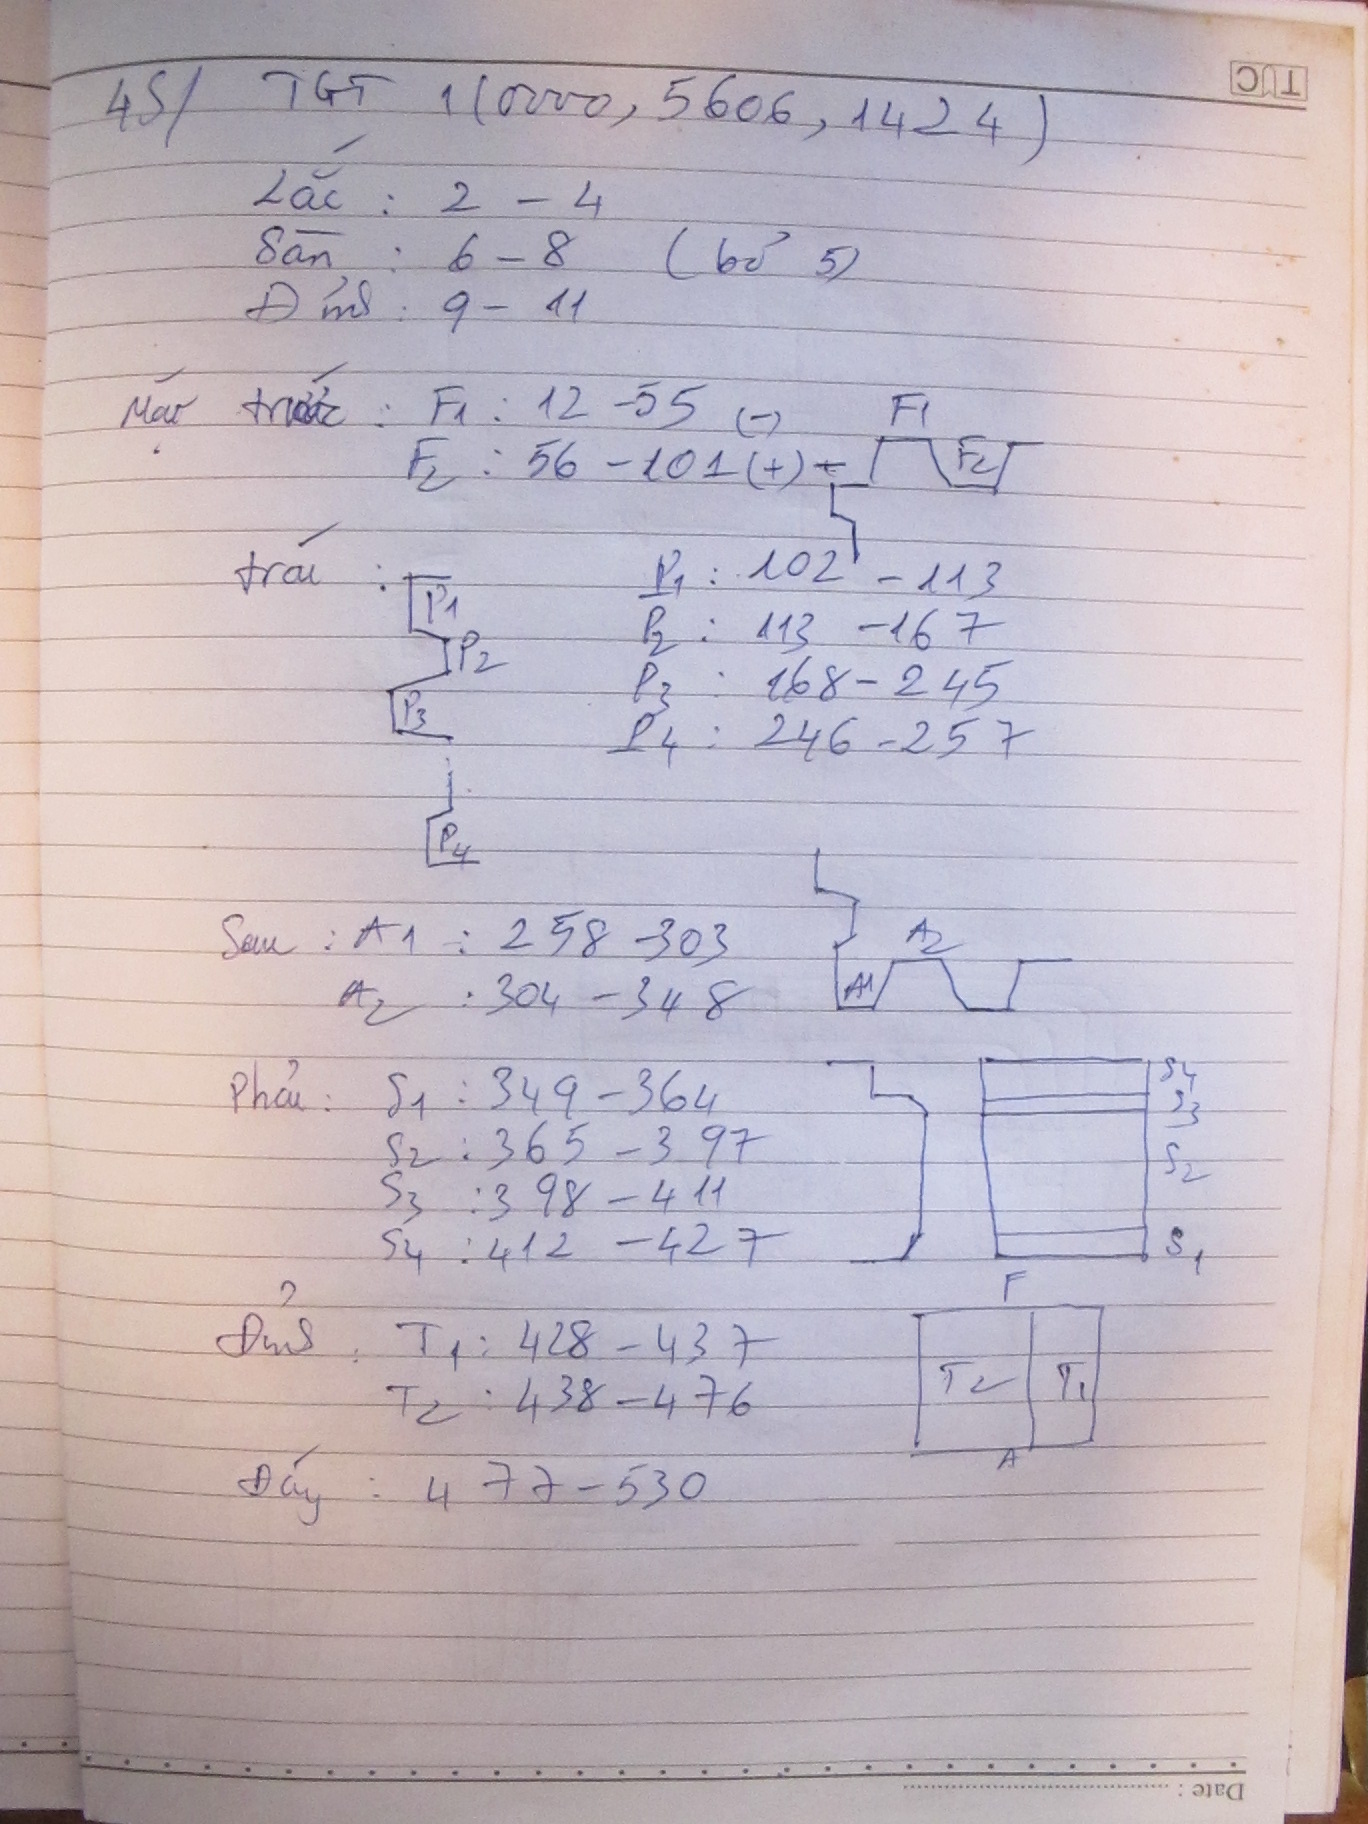 TUC
45/ TGT 1(0000, 5606, 1424)
Lắc : 2 - 4
Sàn : 6 - 8 (bỏ 5)
Đỉnh : 9 - 11
Máu trước : F1 : 12 - 55 (-) F1
F2 : 56 - 101 (+) F2
trái : P1 P1 : 102 - 113
P2 P2 : 113 - 167
P3 P3 : 168 - 245
P4 : 246 - 257
P4
Sau : A1 : 258 - 303 A2
A2 : 304 - 348 A1
Phải : S1 : 349 - 364 S4
S2 : 365 - 397 S3
S3 : 398 - 411 S2
S4 : 412 - 427 S1
F
Đỉnh : T1 : 428 - 437
T2 : 438 - 476 T2 T1
A
Đáy : 477 - 530
Date :